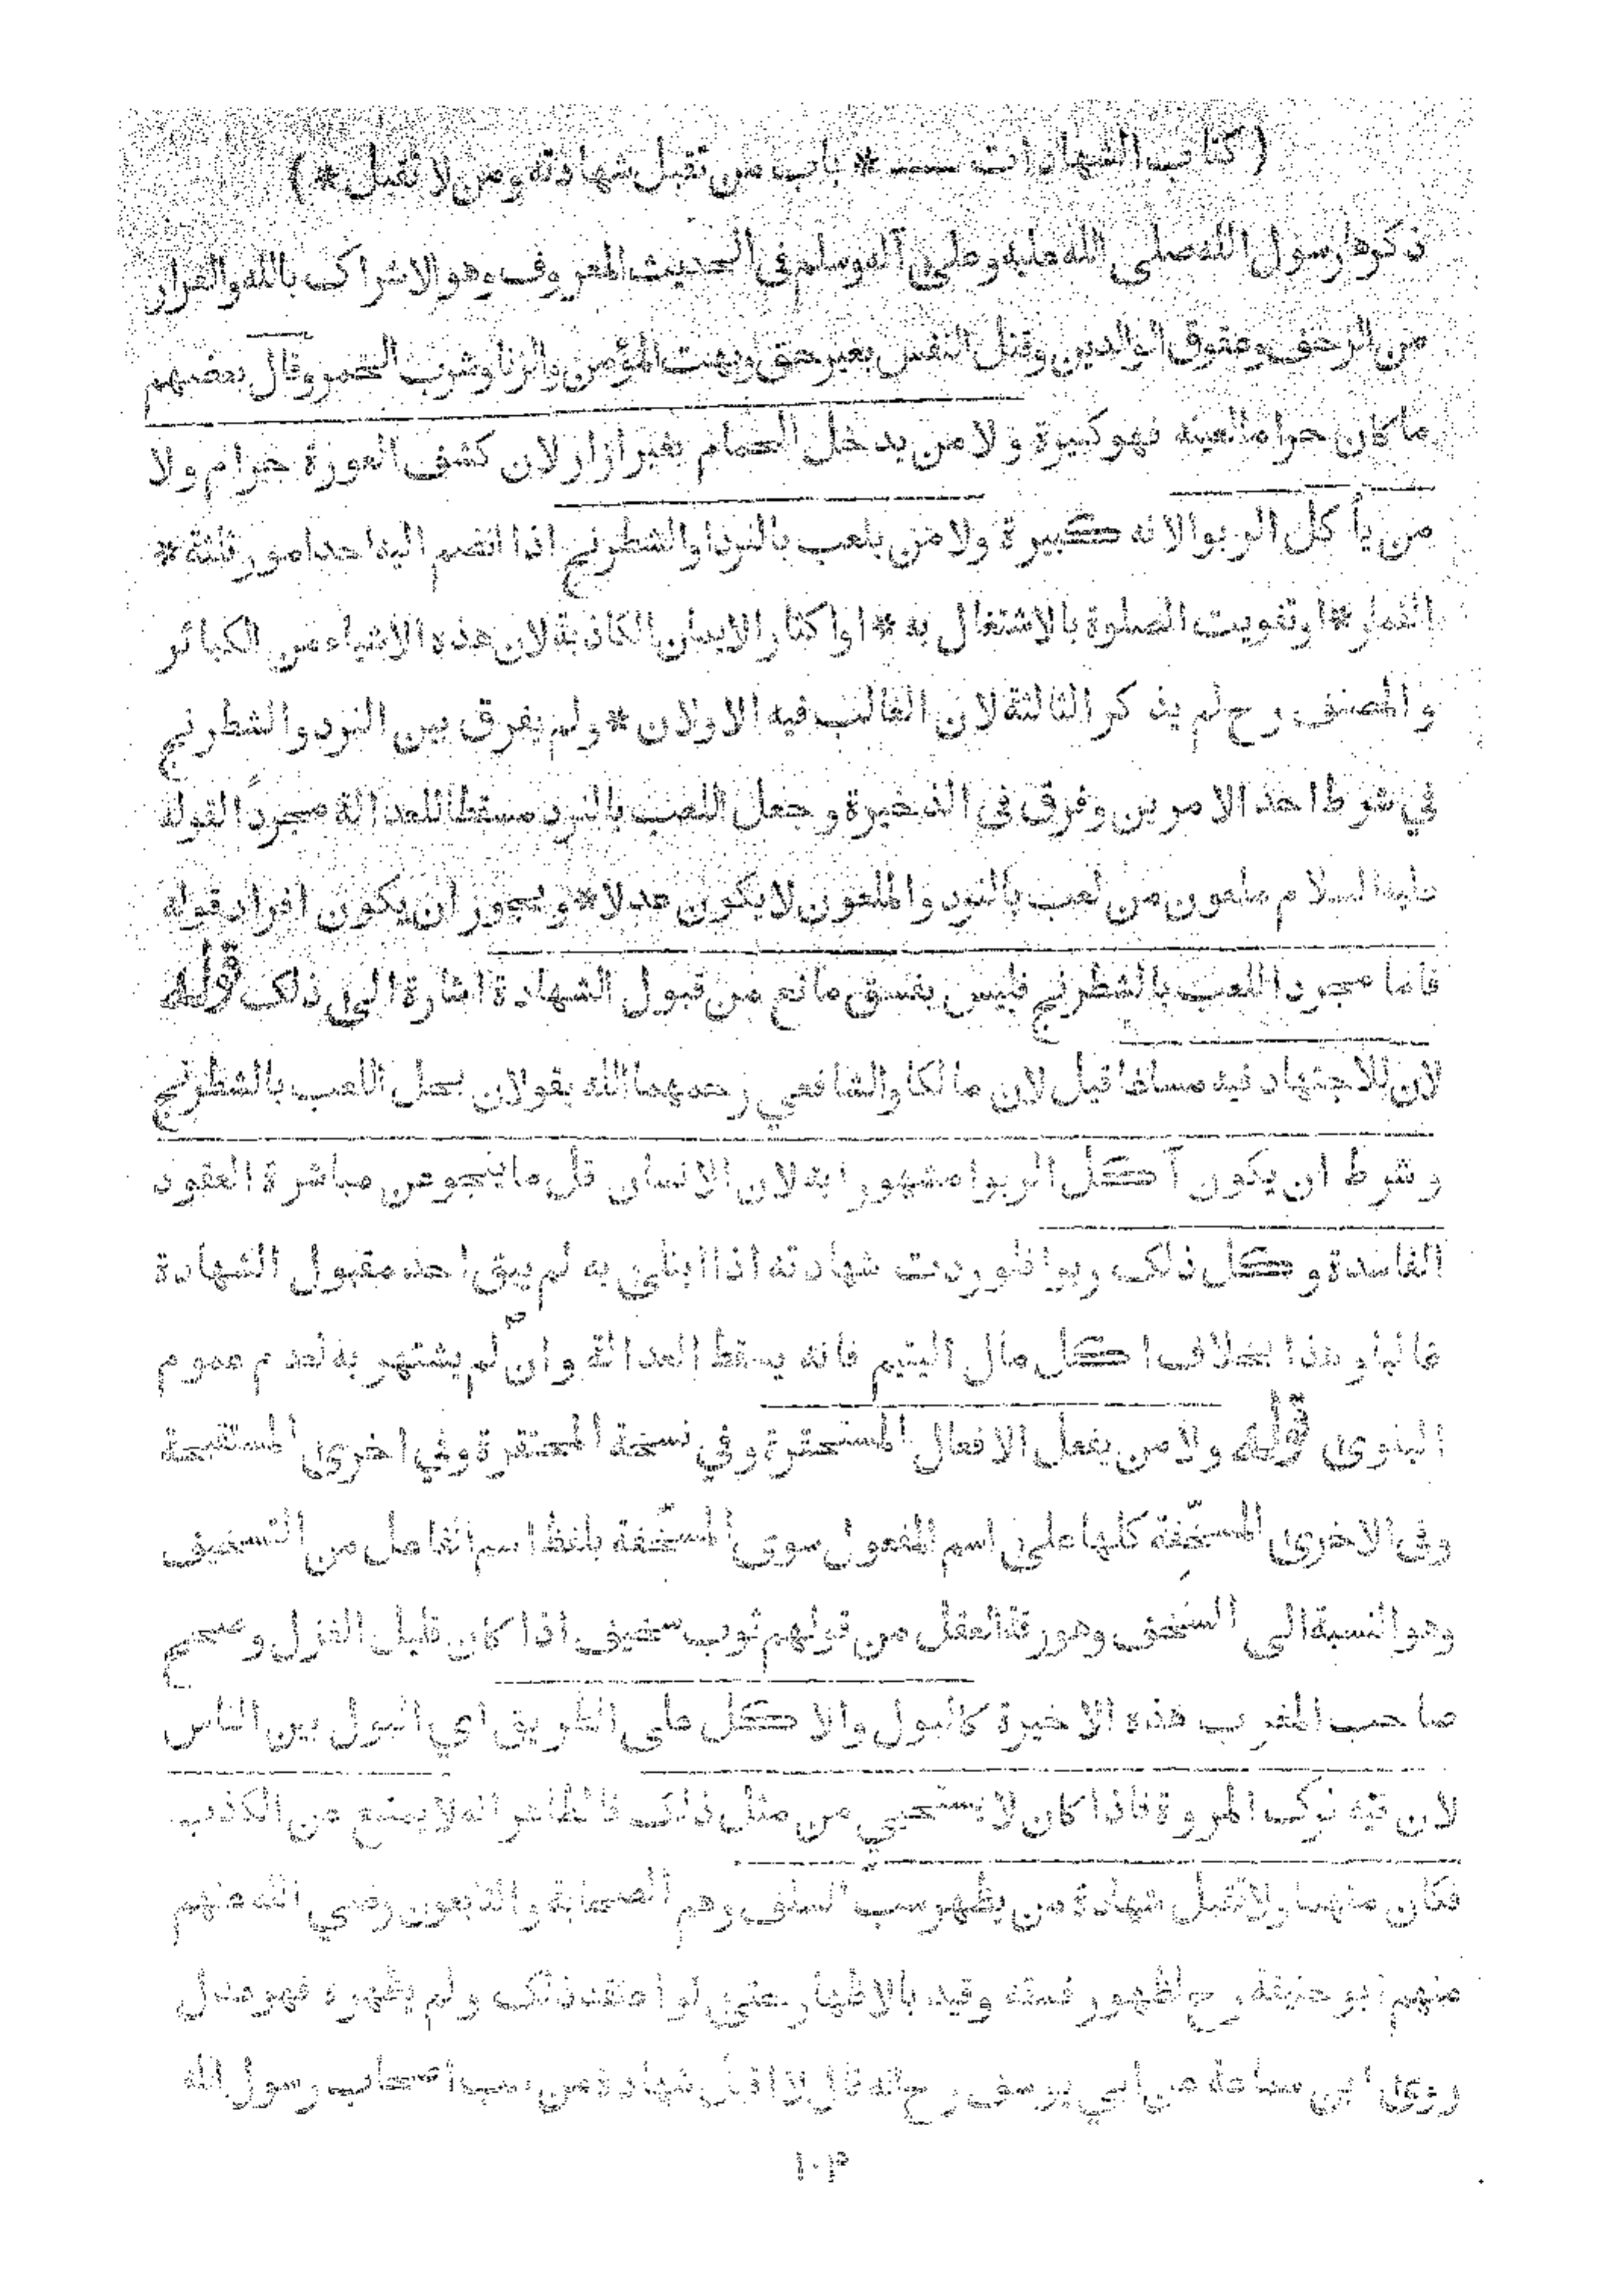 (كتاب الشهادات ـــ * باب من تقبل شهادته ومن لا تقبل *)
ذكرها رسول الله صلى الله عليه وعلى آله وسلم في الحديث المعروف وهو الاشراك بالله والفرار
من الزحف وعقوق الوالدين وقتل النفس بغير حق وبهت المؤمن والزنا وشرب الخمر وقال بعضهم
ما كان حراما لعينه فهو كبيرة ولا من يدخل الحمام بغير ازار لان كشف العورة حرام ولا
من يأكل الربوا لانه كبيرة ولا من يلعب بالنرد والشطرنج اذا انضم اليه احد امور ثلثة *
القمار * او تفويت الصلوة بالاشتغال به * او اكثار الايمان الكاذبة لان هذه الاشياء من الكبائر
والمصنف رح لم يذكر الثالثة لان الغالب فيه الاولان * ولم يفرق بين النرد والشطرنج
في شرط احد الامرين وفرق في الذخيرة وجعل اللعب بالنرد مسقطا للعدالة مجردا لقوله
عليه السلام ملعون من لعب بالنرد والملعون لا يكون عدلا * ويجوز ان يكون افراد قوله
فاما مجرد اللعب بالشطرنج فليس بفسق مانع من قبول الشهادة اشارة الى ذلك قوله
لان للاجتهاد فيه مساغا قيل لان مالكا والشافعي رحمهما الله يقولان بحل اللعب بالشطرنج
وشرط ان يكون آكل الربوا مشهورا به لان الانسان قل ما ينجو من مباشرة العقود
الفاسدة وكل ذلك ربوا فلو ردت شهادته اذا ابتلى به لم يبق احد مقبول الشهادة
غالبا وهذا بخلاف اكل مال اليتيم فانه يسقط العدالة وان لم يشتهر به لعدم عموم
البلوى قوله ولا من يفعل الافعال المستحقرة وفي نسخة المحتقرة وفي اخرى المستقبحة
وفي الاخرى المستخفة كلها على اسم المفعول سوى المسخّفة بلفظ اسم الفاعل من التسخيف
وهو النسبة الى السخف وهو رقة العقل من قولهم ثوب سخيف اذا كان قليل الغزل وصحح
صاحب المغرب هذه الاخيرة كالبول والاكل على الطريق اي البول بين الناس
لان فيه ترك المروة فاذا كان لا يستحيي من مثل ذلك فالظاهر انه لا يمتنع من الكذب
فكان متهما ولا تقبل شهادة من يظهر سب السلف وهم الصحابة والتابعون رضي الله عنهم
منهم ابو حنيفة رح لظهور فسقه وقيد بالاظهار حتى لو اعتقد ذلك ولم يظهره فهو عدل
روى ابن سماعة عن ابي يوسف رح انه قال لا اقبل شهادة من سب اصحاب رسول الله
١٠٣